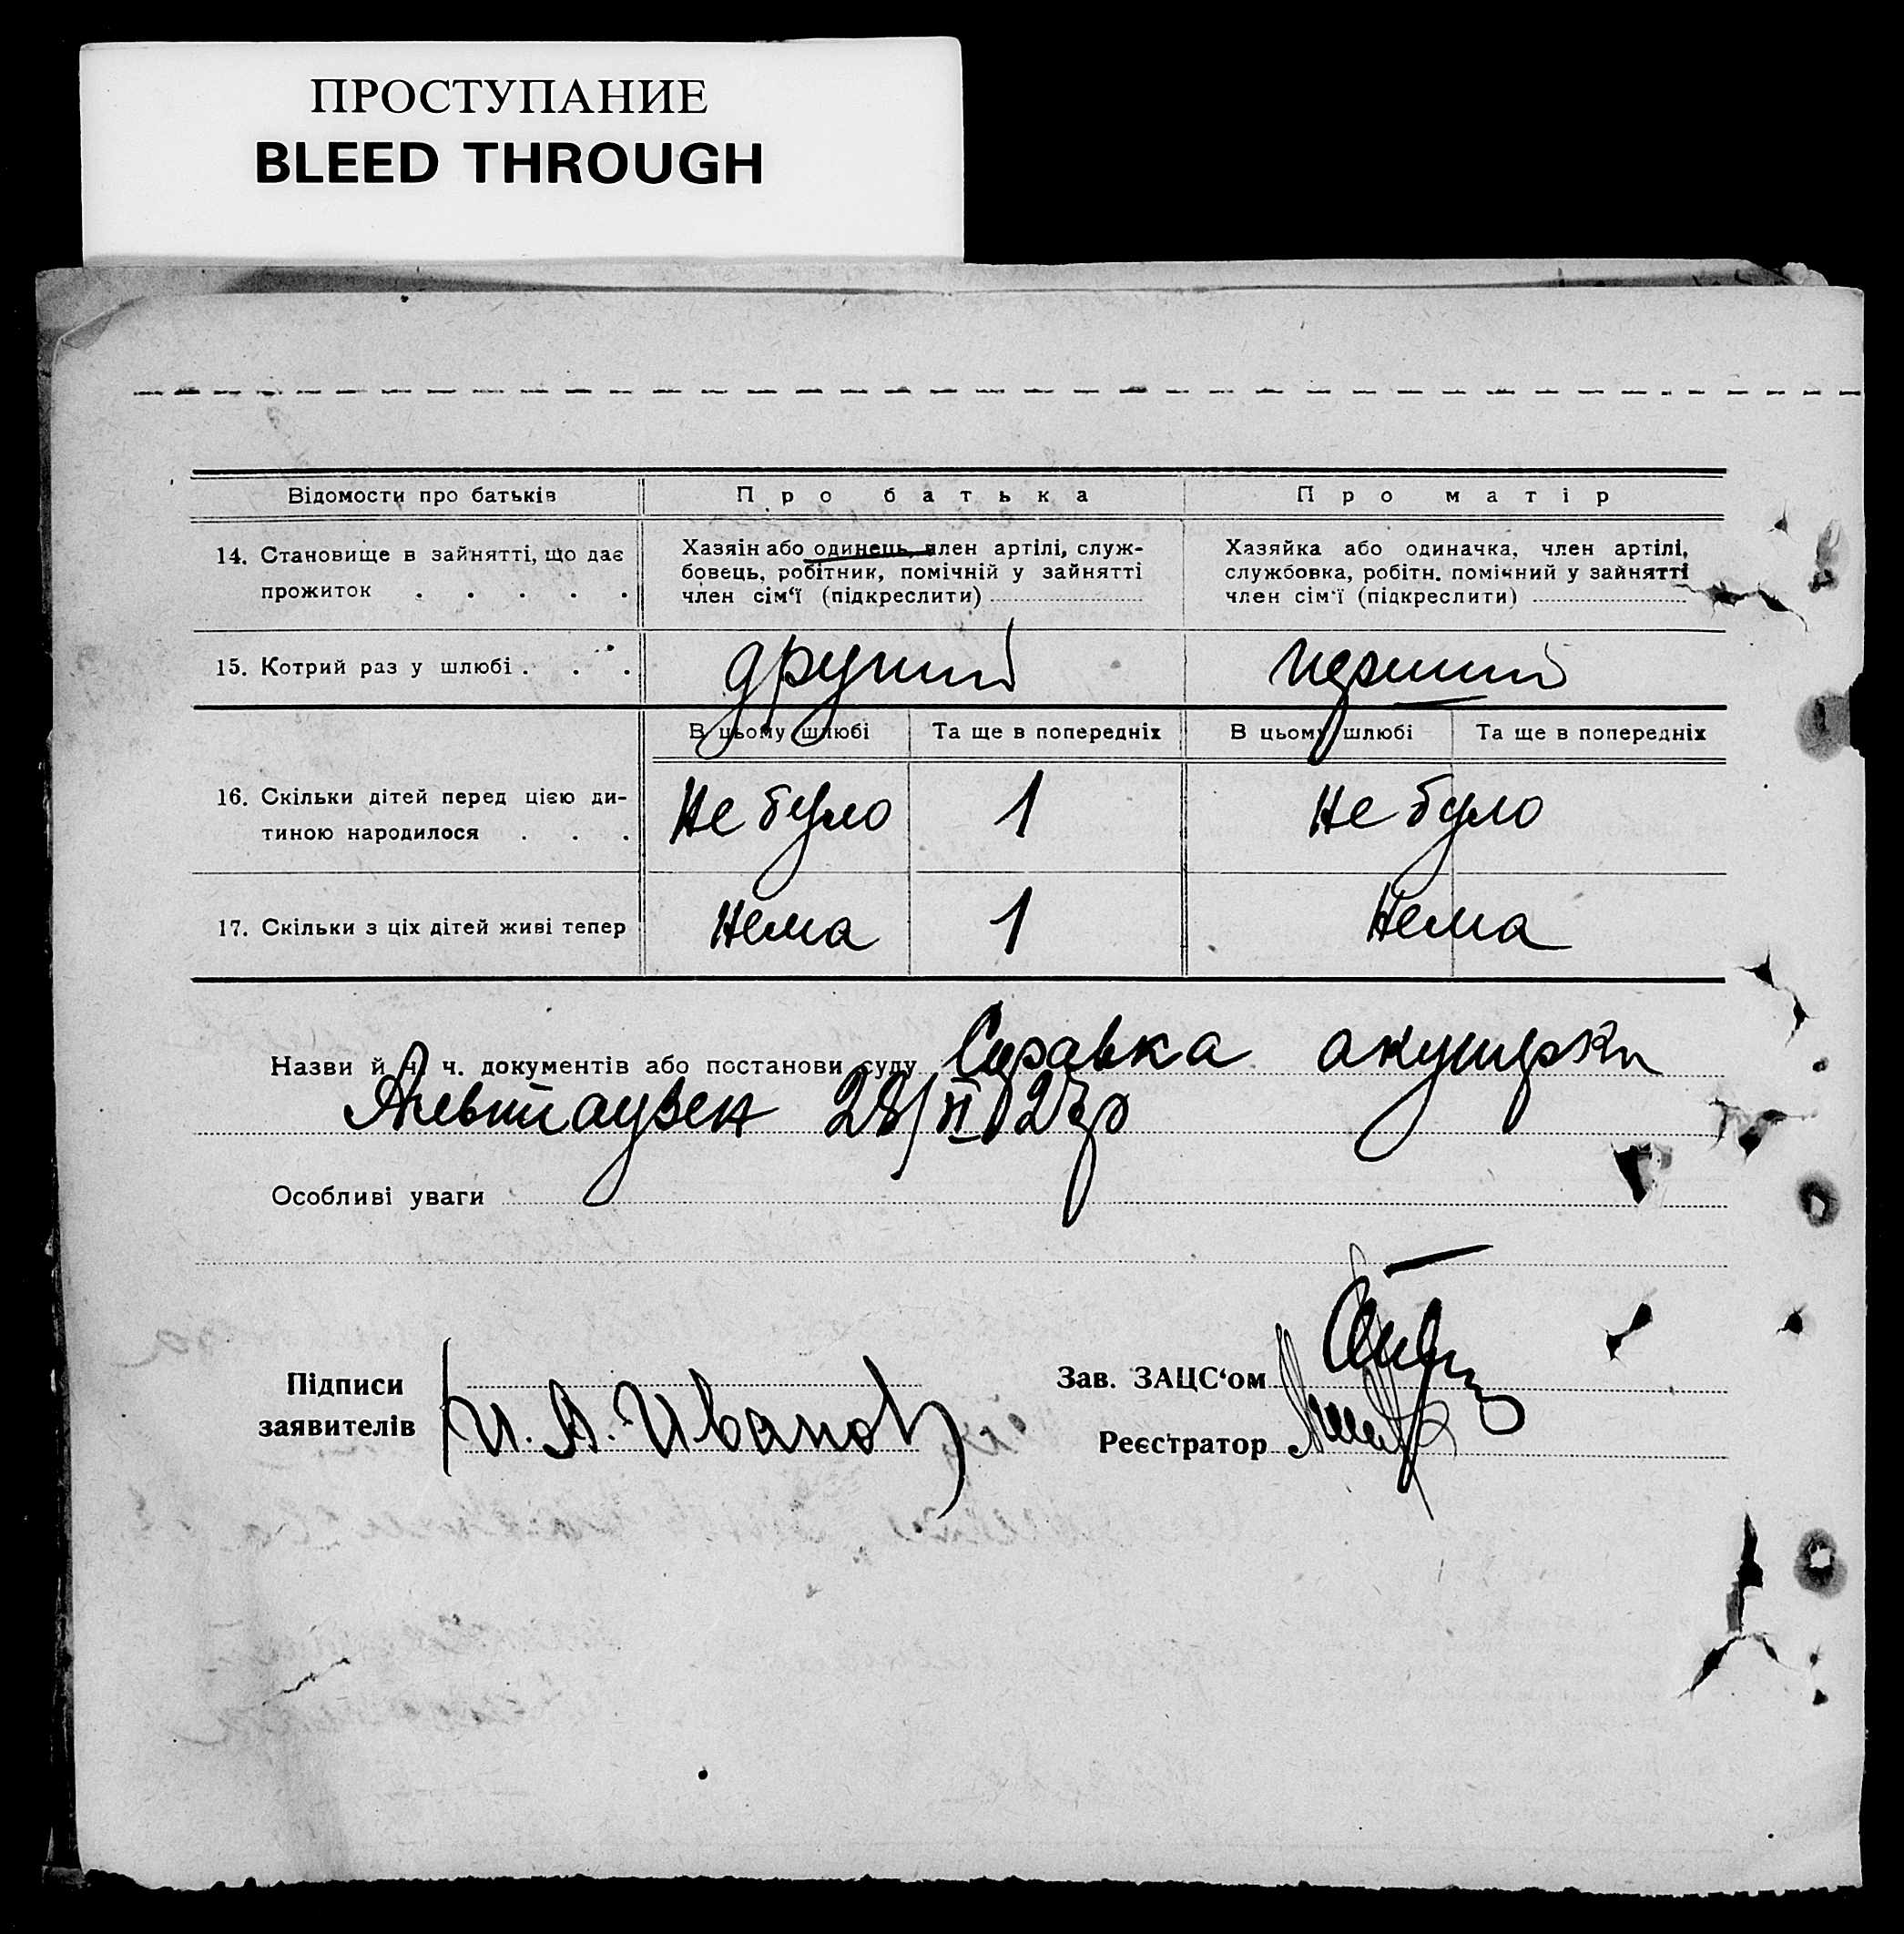 ПРОСТУПАНИЕ
BLEED THROUGH
Відомости про батьків
Про батька
Про матір
14. Становище в зайнятті, що дає
прожиток . . . . .
Хазяін або одинець, член артілі, служ-
бовець, робітник, помічній у зайнятті
член сім‘ї (підкреслити)
Хазяйка або одиначка, член артілі,
службовка, робітн. помічний у зайнятті
член сім‘ї (підкреслити)
15. Котрий раз у шлюбі . . .
другий
перший
В цьому шлюбі
Та ще в попередніх
В цьому шлюбі
Та ще в попередніх
16. Скільки дітей перед цією ди-
тиною народилося . . .
Не було
1
Не було
17. Скільки з ціх дітей живі тепер
Нема
1
Нема
Назви й ч. ч. документів або постанови суду Справка акушерки
28/VI 27р
Особливі уваги
Підписи
заявителів
И. А. Иванов
Зав. ЗАЦС‘ом
Реєстратор